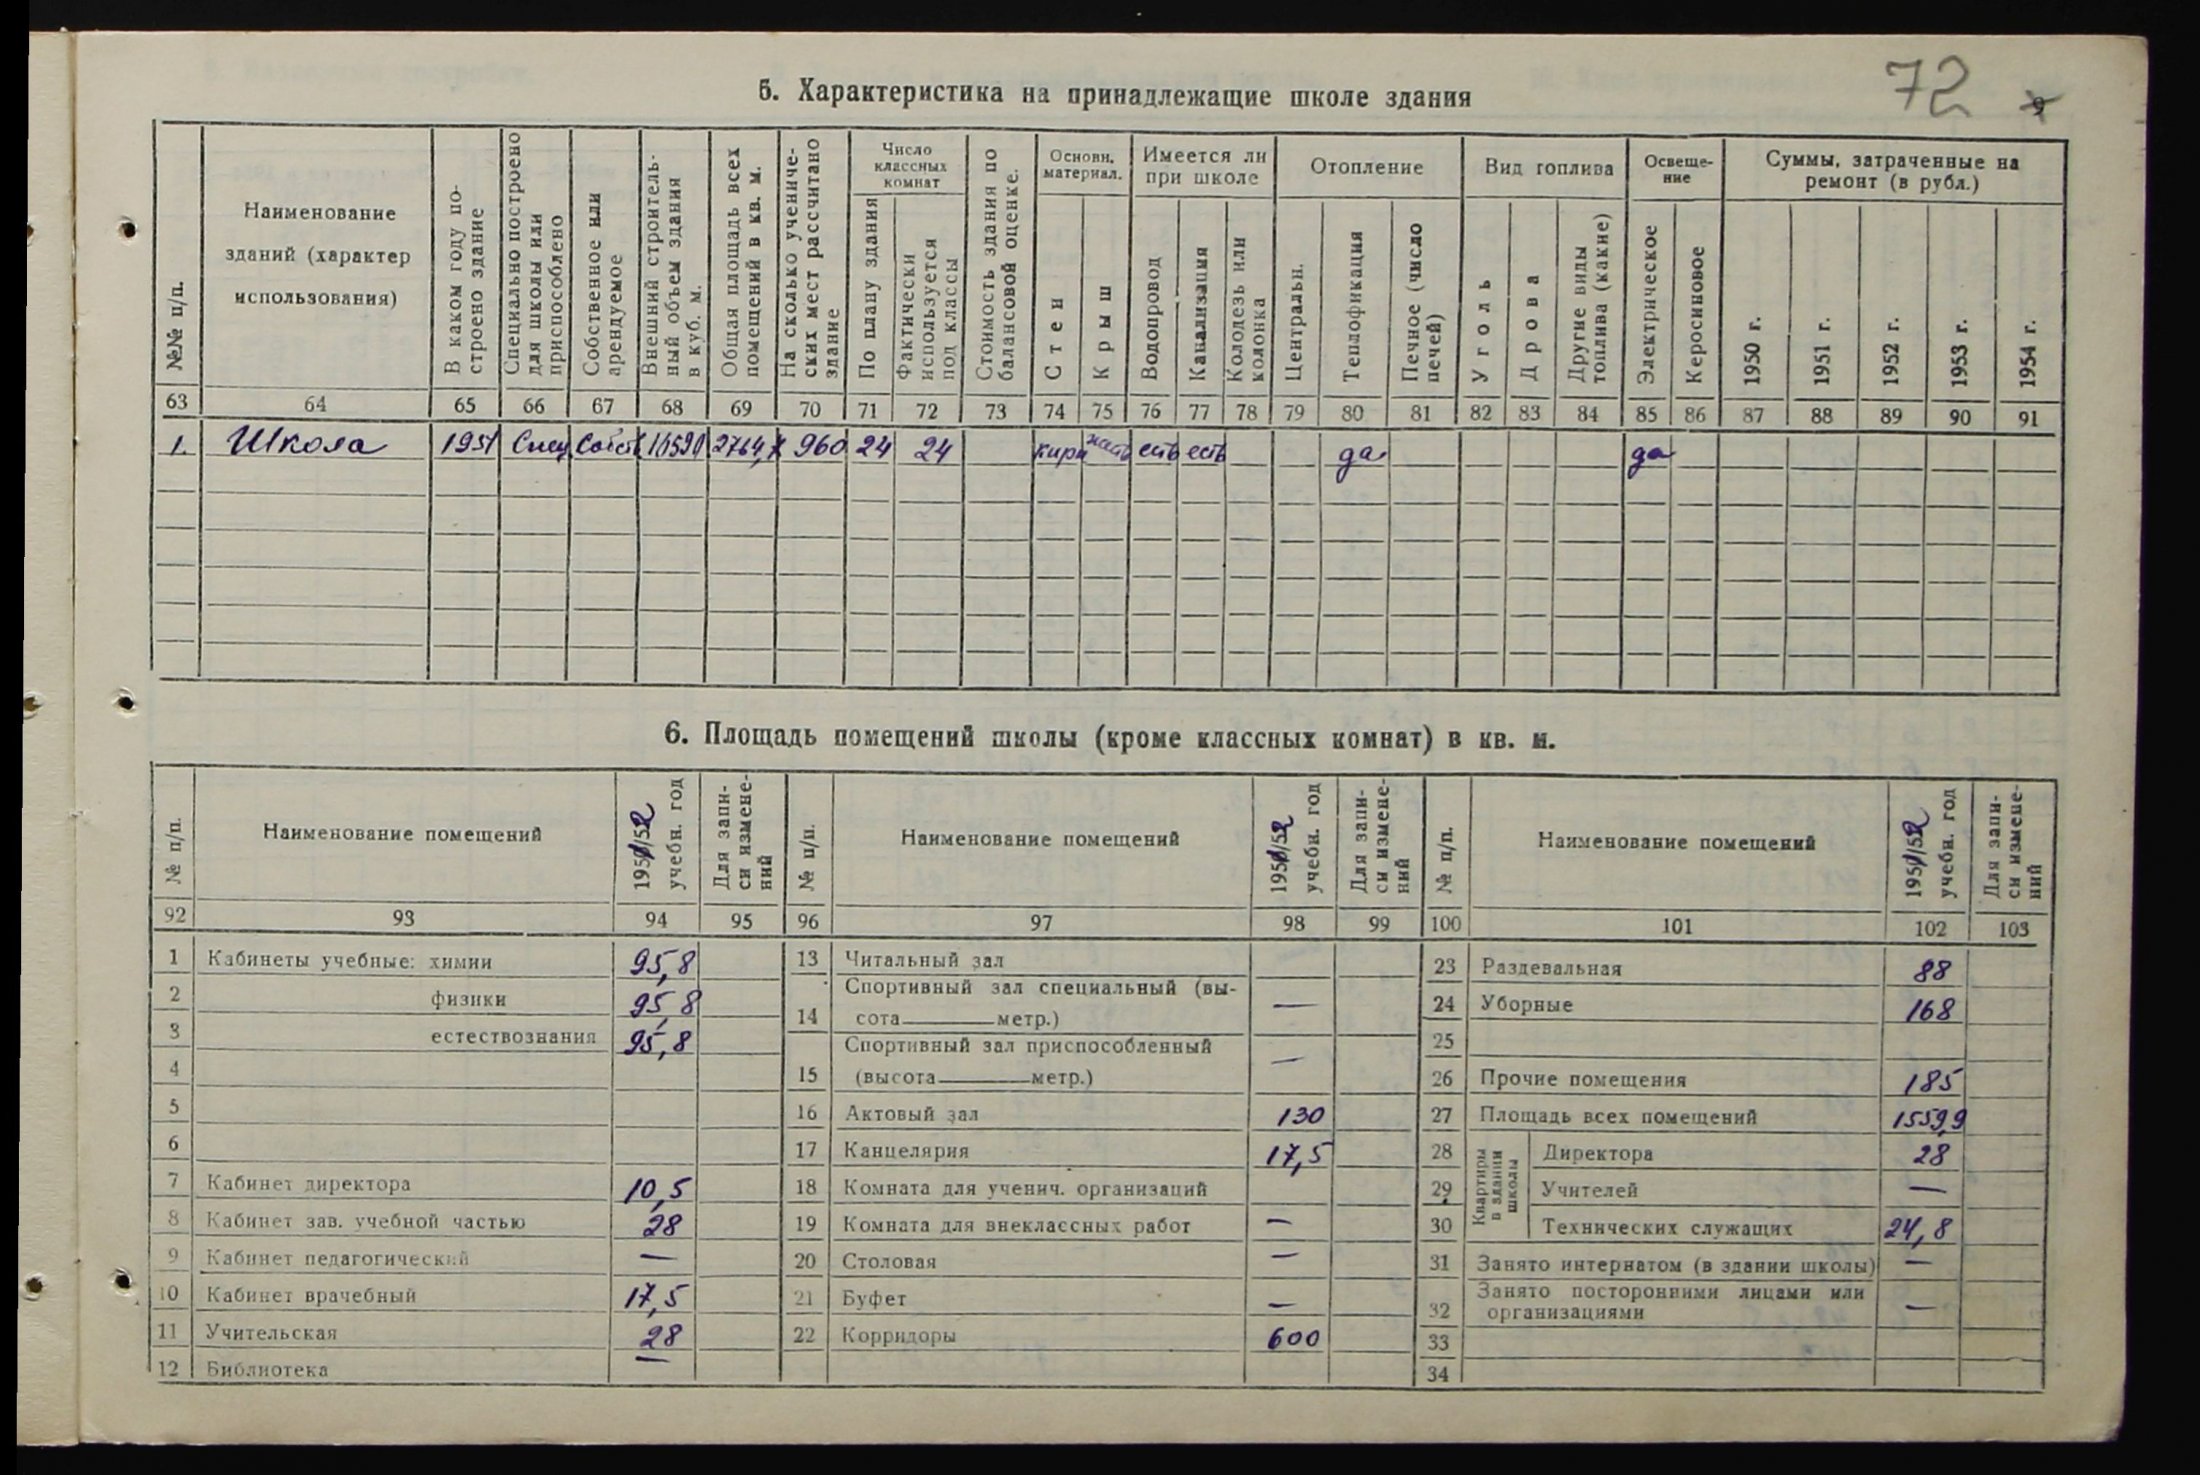 72
9
5. Характеристика на принадлежащие школе здания
№№ п/п.
Наименование зданий (характер использования)
В каком году построено здание
Специально построено для школы или приспособлено
Собственное или арендуемое
Внешний строительный объем здания в куб. м.
Общая площадь всех помещений в кв. м.
На сколько ученических мест рассчитано здание
Число классных комнат
По плану здания
Фактически используется под классы
Стоимость здания по балансовой оценке.
Основн. материал.
Стен
Крыш
Имеется ли при школе
Водопровод
Канализация
Колодезь или колонка
Отопление
Центральн.
Теплофикация
Печное (число печей)
Вид топлива
Уголь
Дрова
Другие виды топлива (какие)
Освещение
Электрическое
Керосиновое
Суммы, затраченные на ремонт (в рубл.)
1950 г.
1951 г.
1952 г.
1953 г.
1954 г.
63 64 65 66 67 68 69 70 71 72 73 74 75 76 77 78 79 80 81 82 83 84 85 86 87 88 89 90 91
1. Школа 1951 Спец Собств 960 24 24 кирп есть есть да да
6. Площадь помещений школы (кроме классных комнат) в кв. м.
№ п/п.
Наименование помещений
1951/52 учебн. год
Для записи изменений
№ п/п.
Наименование помещений
1951/52 учебн. год
Для записи изменений
№ п/п.
Наименование помещений
1951/52 учебн. год
Для записи изменений
92 93 94 95 96 97 98 99 100 101 102 103
1 Кабинеты учебные: химии 95,8
2 физики 95,8
3 естествознания 95,8
4
5
6
7 Кабинет директора 10,5
8 Кабинет зав. учебной частью 28
9 Кабинет педагогический —
10 Кабинет врачебный 17,5
11 Учительская 28
12 Библиотека —
13 Читальный зал
14 Спортивный зал специальный (высота ——— метр.) —
15 Спортивный зал приспособленный (высота ——— метр.) —
16 Актовый зал 130
17 Канцелярия 17,5
18 Комната для ученич. организаций
19 Комната для внеклассных работ —
20 Столовая —
21 Буфет —
22 Корридоры 600
23 Раздевальная 88
24 Уборные 168
25
26 Прочие помещения 185
27 Площадь всех помещений 1559,9
Квартиры в здании школы
28 Директора 28
29 Учителей —
30 Технических служащих 24,8
31 Занято интернатом (в здании школы) —
32 Занято посторонними лицами или организациями —
33
34